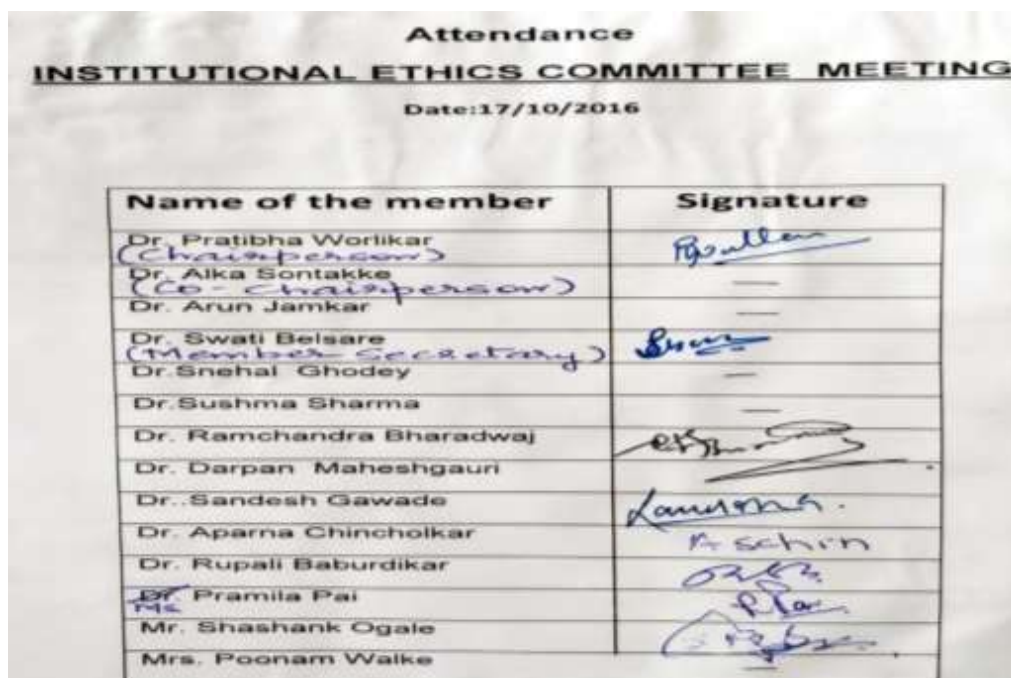 Attendance
INSTITUTIONAL ETHICS COMMITTEE MEETING
Date:17/10/2016
Name of the member Signature
Dr. Pratibha Worlikar
(Chairperson)
Dr. Alka Sontakke —
(Co-Chairperson)
Dr. Arun Jamkar —
Dr. Swati Belsare
(Member Secretary)
Dr.Snehal Ghodey —
Dr.Sushma Sharma —
Dr. Ramchandra Bharadwaj
Dr. Darpan Maheshgauri
Dr..Sandesh Gawade
Dr. Aparna Chincholkar A schin
Dr. Rupali Baburdikar
Dr. Pramila Pai P Pai
Ms
Mr. Shashank Ogale
Mrs. Poonam Walke —